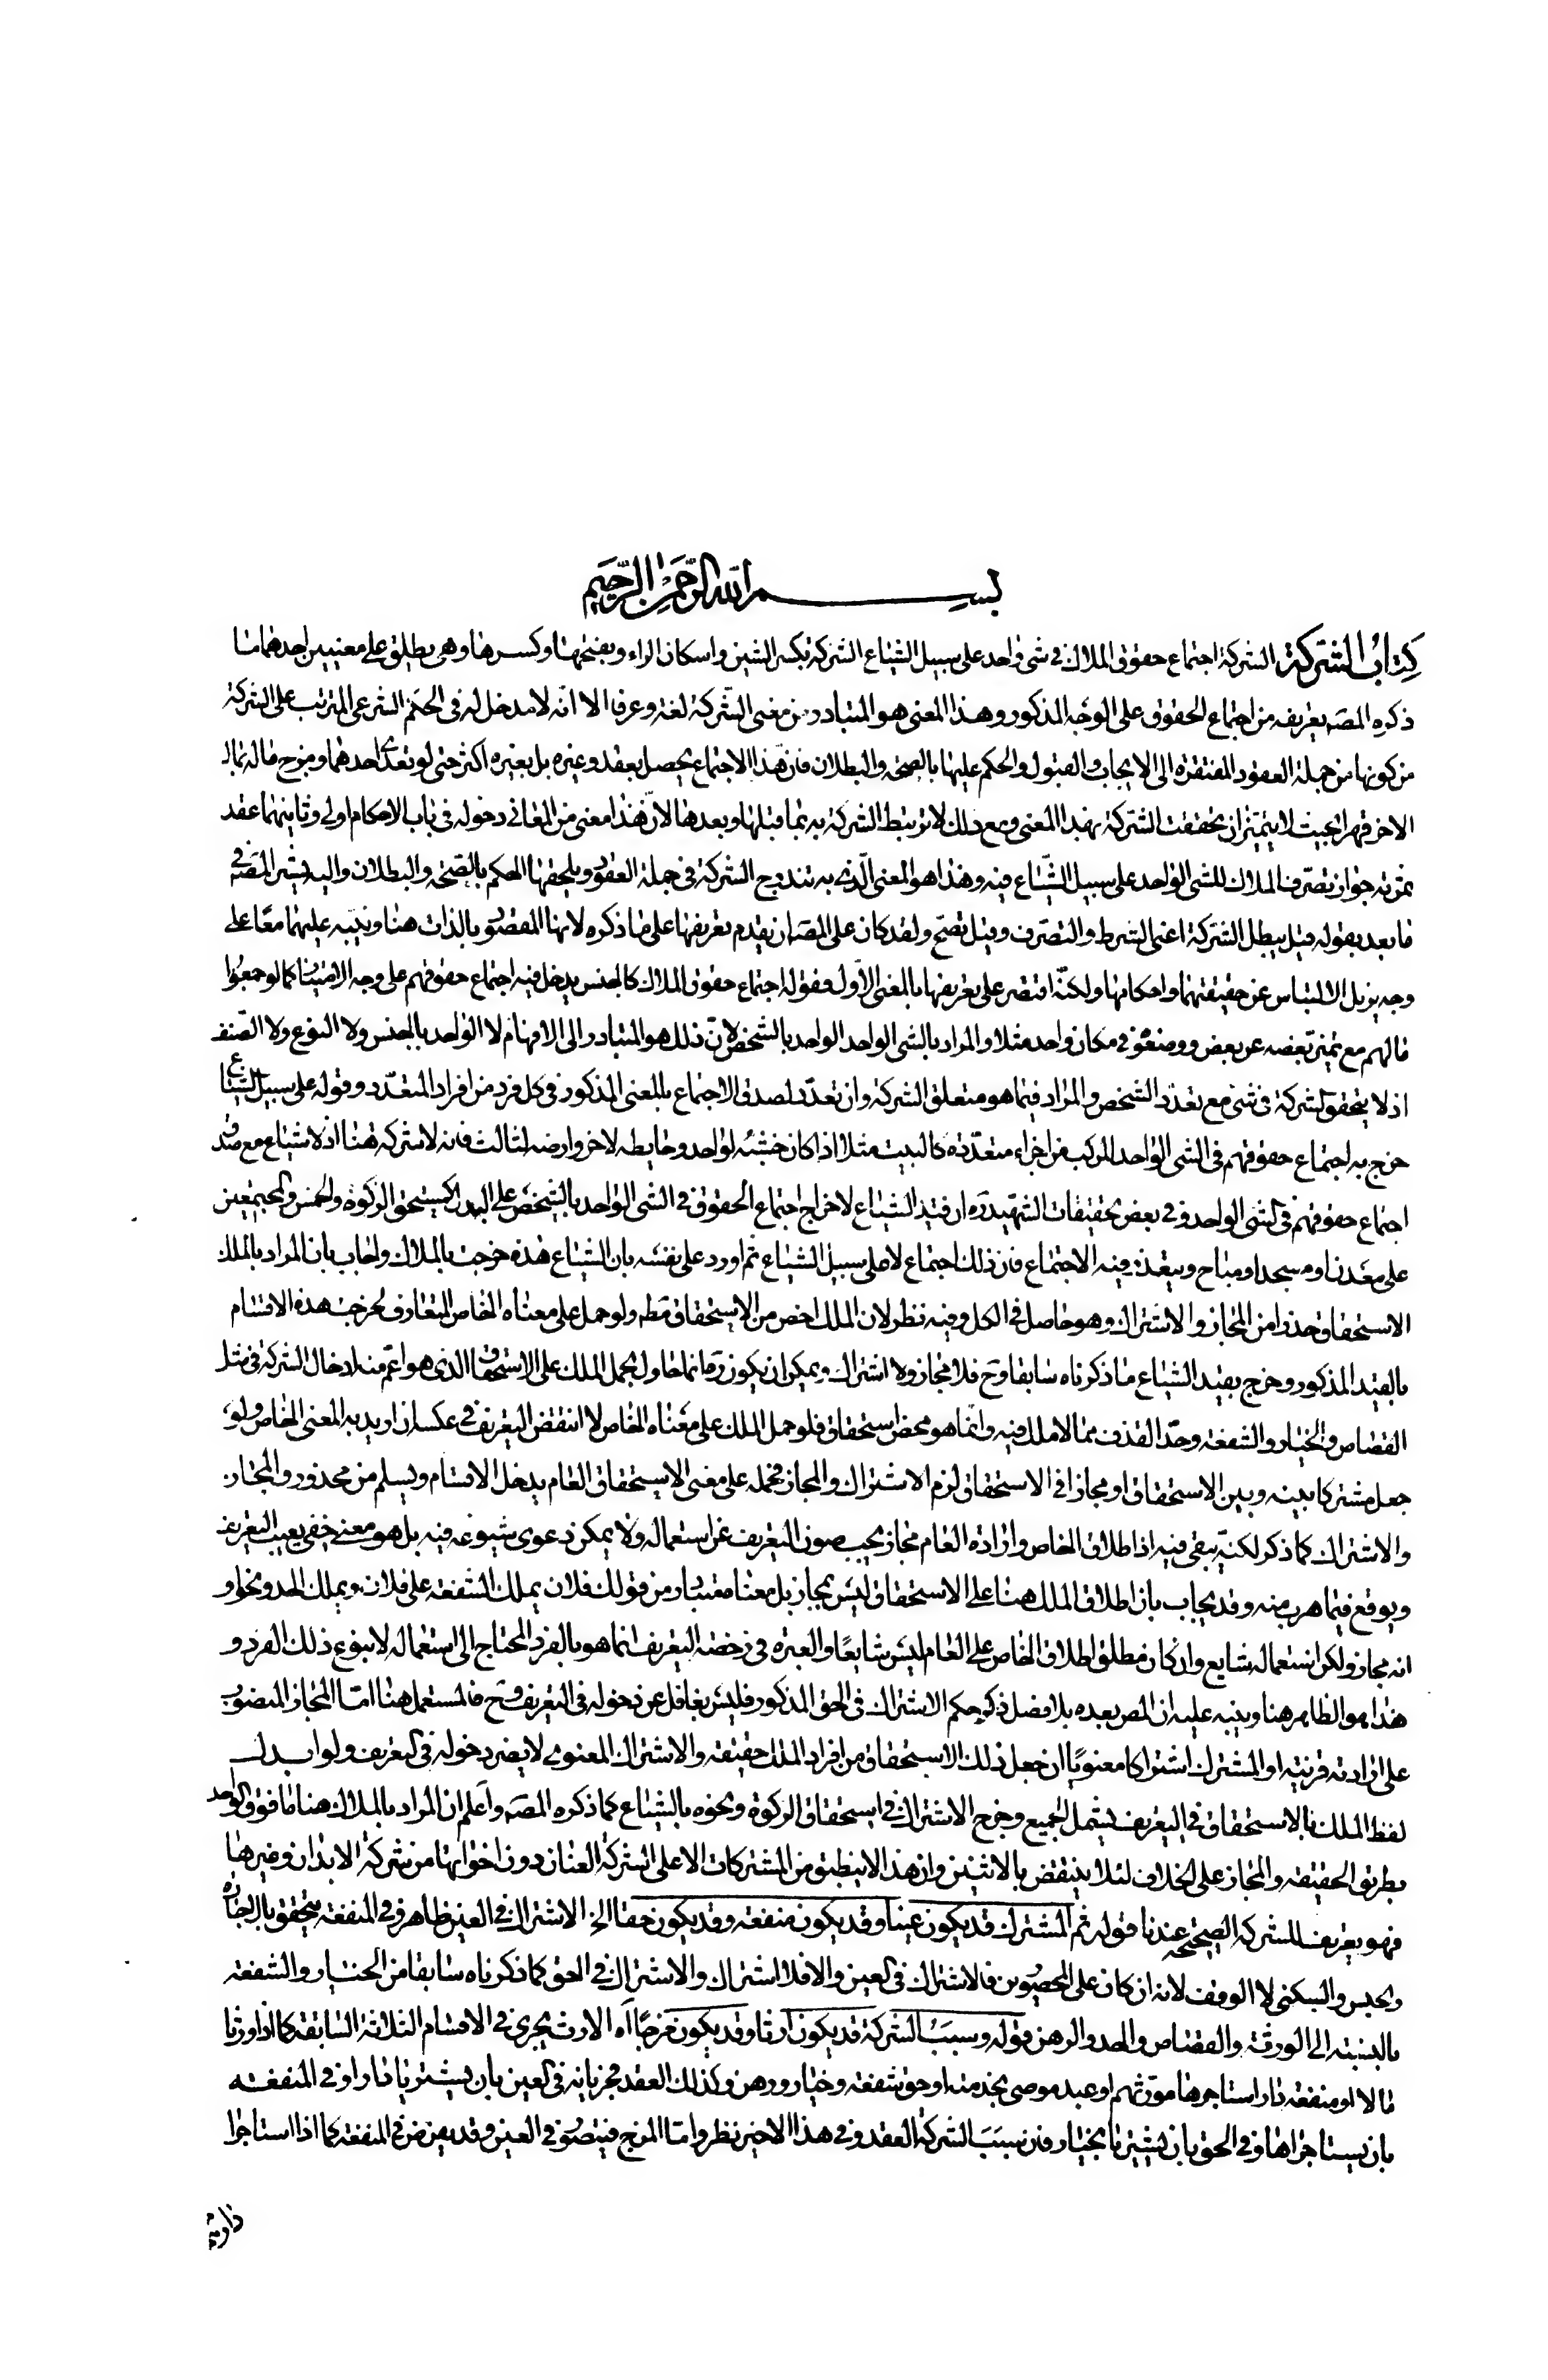 بسم الله الرحمن الرحيم
كتاب الشركة الشركة اجتماع حقوق الملاك في شئ واحد على سبيل الشياع الشركة بكسر الشين واسكان الراء وبفتحها وكسرها وهى يطلق على معنيين احدهما ما
ذكره المصه بتعريفه من اجتماع الحقوق على الوجه المذكور وهذا المعنى هو المتبادر من معنى الشركة لغة وعرفا الا انه لا مدخل له في الحكم الشرعي المترتب على الشركة
من كونها من جملة العقود المفتقرة الى الايجاب والقبول والحكم عليها بالصحة والبطلان فان هذا الاجتماع يحصل بعقد وغيره بل بغيره اكثر حتى لو تعدى احدهما ومزج ماله بمال
الاخر قهرا بحيث لا يتميزان تحققت الشركة بهذا المعنى ومع ذلك لا ترتبط الشركة به بما قبلها وبعدها لان هذا معنى من المعاني دخوله في باب الاحكام اولى وثانيهما عقد
ثمرته جواز تصرف الملاك للشئ الواحد على سبيل الشياع فيه وهذا هو المعنى الذى به تندرج الشركة في جملة العقود ويلحقها الحكم بالصحة والبطلان واليه يشير المصه في
ما بعد بقوله قيل يبطل الشركة اعنى الشرط والتصرف وقيل تصح ولقد كان على المصه ان يقدم تعريفها على ما ذكره لانها المقصود بالذات هنا وينبه عليهما معا على
وجه يزيل الالتباس عن حقيقتهما واحكامها ولكنه اقتصر على تعريفها بالمعنى الاول فقوله اجتماع حقوق الملاك كالجنس يدخل فيه اجتماع حقوقهم على وجه الامتياز كما لو جمعوا
مالهم مع تميز بعضه عن بعض ووضعوه في مكان واحد مثلا والمراد بالشئ الواحد الواحد بالشخص لان ذلك هو المتبادر الى الافهام لا الواحد بالجنس ولا النوع ولا الصنف
اذ لا يتحقق الشركة في شئ مع تعدد الشخص والمراد فيما هو متعلق الشركة وان تعدد لصدق الاجتماع بالمعنى المذكور في كل فرد من افراد المتعدد وقوله على سبيل الشياع
خرج به اجتماع حقوقهم في الشئ الواحد المركب من اجزاء متعددة كالبيت مثلا اذا كان خشبه لواحد وحايطه لاخر وارضه لثالث فانه لا شركة هنا اذ لا شياع مع صدق
اجتماع حقوقهم في الشئ الواحد وفي بعض تحقيقات الشهيد ره ان قيد الشياع لاخراج اجتماع الحقوق في الشئ الواحد بالشخص على البدل كمستحق الزكوة والخمس والمجتمعين
على معدن او مسجد او مباح ويتعذر فيه الاجتماع فان ذلك اجتماع لا على سبيل الشياع ثم اورد على نفسه بان الشياع هذه خرجت بالملاك واجاب بان المراد بالملك
الاستحقاق حذرا من المجاز والاشتراك وهو حاصل في الكل وفيه نظر لان الملك اخص من الاستحقاق مطه ولو حمل على معناه الخاص المتعارف لخرجت هذه الاقسام
بالقيد المذكور وخرج بقيد الشياع ما ذكرناه سابقا وح فلا مجاز ولا اشتراك ويمكن ان يكون ره انما حاول بحمل الملك على الاستحقاق الذي هو اعم منه ادخال الشركة في مثل
القصاص والخيار والشفعة وحد القذف مما لا ملك فيه وانما هو محض استحقاق فلو حمل الملك على معناه الخاص لا انتقض التعريف في عكسه ان اريد به المعنى الخاص ولو
جعل مشتركا بينه وبين الاستحقاق او مجازا في الاستحقاق لزم الاشتراك والمجاز فحمله على معنى الاستحقاق العام يدخل الاقسام ويسلم من محذور المجاز
والاشتراك كما ذكر لكنه يبقى فيه اذ اطلاق الخاص وارادة العام مجاز يجب صون التعريف عن استعماله ولا يمكن دعوى شيوعه فيه بل هو معنى خفي يعيب التعريف
ويوقع فيما هرب منه وقد يجاب بان اطلاق الملك هنا على الاستحقاق ليس بمجاز بل معنا متبادر من قولك فلان يملك الشفعة على فلان ويملك الحد ونحوه او
انه مجاز ولكن استعماله شايع وان كان مطلق اطلاق الخاص على العام ليس شايعا والعبرة في رخصة التعريف انما هو بالفرد المحتاج الى استعماله لا بنوع ذلك الفرد و
هذا هو الظاهر هنا وينبه عليه ان المص بعده بلا فصل ذكر حكم الاشتراك في الحق المذكور فليس بغافل عن دخوله في التعريف وح فالمستعمل هنا اما المجاز المنصوب
على ارادته قرينة او المشترك اشتراكا معنويا ان جعل ذلك الاستحقاق من افراد الملك حقيقة والاشتراك المعنوي لا يضر دخوله في التعريف ولو ابدل
لفظ الملك بالاستحقاق في التعريف ليشمل الجميع وخرج الاشتراك في استحقاق الزكوة ونحوه بالشياع كما ذكره المصه واعلم ان المراد بالملاك هنا ما فوق الواحد
بطريق الحقيقة والمجاز على الخلاف لئلا ينتقض بالاثنين وان هذا لا ينطبق من المشتركات الا على الشركة العنان دون اخواتها من شركة الابدان وغيرها
فهو تعريف للشركة الصحيحة عندنا قوله ثم المشترك قد يكون عينا وقد يكون منفعة وقد يكون حقا الخ الاشتراك في العين ظاهر وفي المنفعة يتحقق بالاجارة
والحبس والسكنى لا الوقف لانه ان كان على المحصورين فالاشتراك في العين والا فلا اشتراك والاشتراك في الحق كما ذكرناه سابقا من الخيار والشفعة
بالنسبة الى الورثة والقصاص والحد والرهن قوله وسبب الشركة قد يكون ارثا وقد يكون مزجا اه الارث يجرى في الاقسام الثلاثة السابقة كما اذا ورثا
مالا او منفعة دار استاجرها مورثهم او عبد موصى بخدمته او حق شفعة وخيار ورهن وكذلك العقد فجريانه في العين بان يشتريا دارا وفي المنفعة
بان يستاجراها وفي الحق بان يشتريا بخيار فان سبب الشركة العقد وفي هذا الاخير نظر واما المزج فيتصور في العين وقد يعرض في المنفعة كما اذا استاجرا